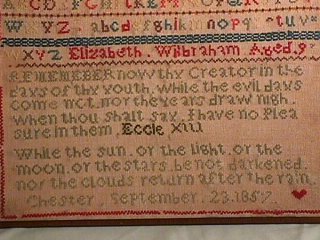 W Y Z abcdefghiklmnopq tuv
xyz Elizabeth Wilbraham Aged 9
REMEMEBER now thy Creator in the
days of thy youth, While the evil days
come not nor the years draw nigh
when thou shalt say I have no Plea
sure in them, Eccle XIII
While the sun or the light or the
moon or the stars be not darkened
nor the clouds return after the rain
Chester September 23.1857